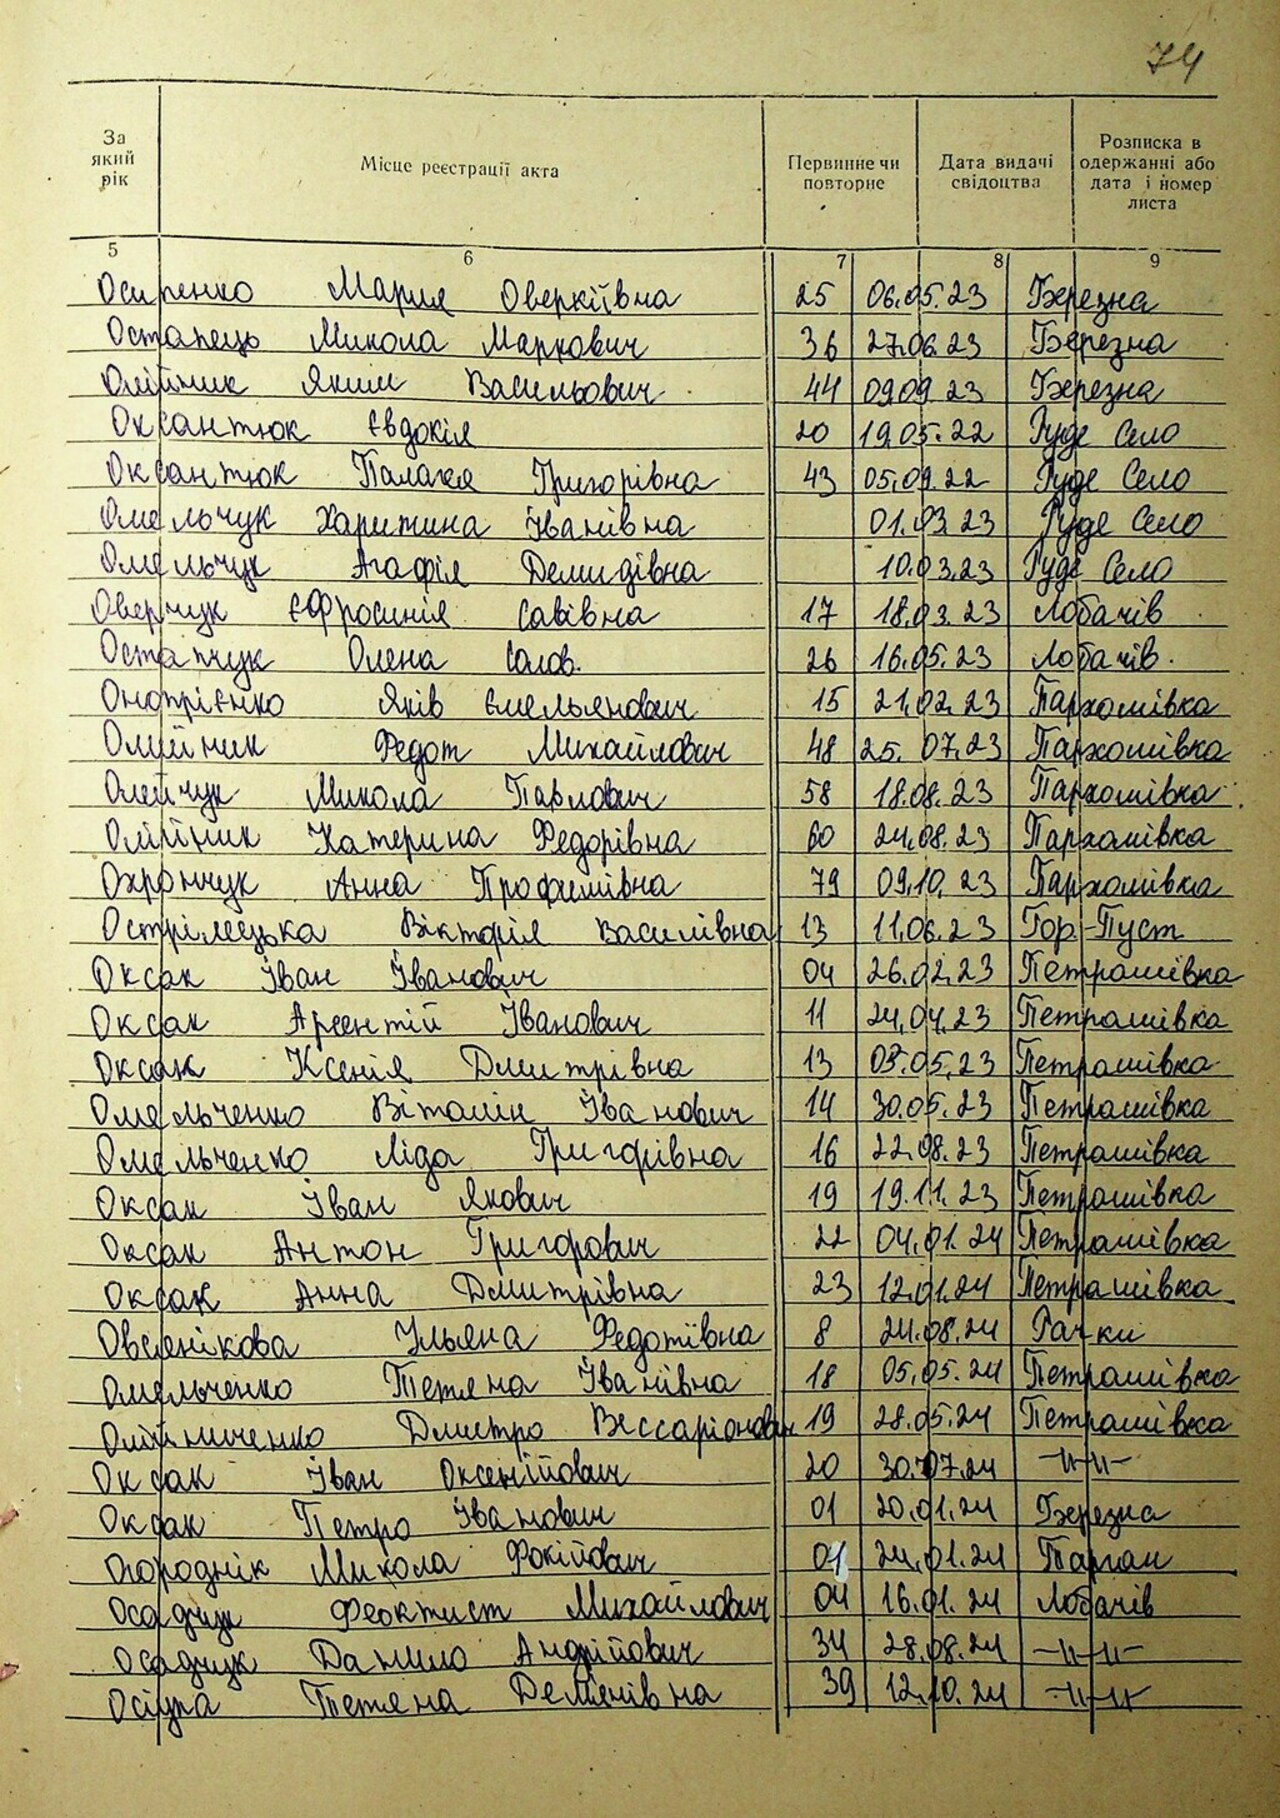 74
За який рік Місце реєстрації акта Первинне чи повторне Дата видачі свідоцтва Розписка в одержанні або дата і номер листа
5 6 7 8 9
Осипенко Мария Оверкіївна 25 06.05.23 Березна
Остапець Микола Маркович 36 27.06.23 Березна
Олійник Яким Васильович 44 09.09.23 Березна
Оксантюк Євдокія 20 19.05.22 Руде Село
Оксантюк Палагея Григорівна 43 05.09.22 Руде Село
Омельчук Харитина Іванівна 01.03.23 Руде Село
Омельчук Агафія Демидівна 10.03.23 Руде Село
Оверчук Єфросинія Савівна 17 18.03.23 Лобачів
Остапчук Олена Солов. 26 16.05.23 Лобачів.
Онопрієнко Яків Ємельянович 15 21.02.23 Пархомівка
Олийник Федот Михайлович 48 25.07.23 Пархомівка
Олейчук Микола Павлович 58 18.08.23 Пархомівка
Олійник Катерина Федорівна 60 24.08.23 Пархомівка
Охрончук Анна Трофимівна 79 09.10.23 Пархомівка
Острілецька Вікторія Василівна 13 11.06.23 Гор-Пуст
Оксак Іван Іванович 04 26.02.23 Петрашівка
Оксак Арсентій Іванович 11 24.04.23 Петрашівка
Оксак Ксенія Дмитрівна 13 03.05.23 Петрашівка
Омельченко Віталій Іванович 14 30.05.23 Петрашівка
Омельченко Ліда Григорівна 16 22.08.23 Петрашівка
Оксак Іван Якович 19 19.11.23 Петрашівка
Оксак Антон Григорович 22 04.01.24 Петрашівка
Оксак Анна Дмитрівна 23 12.01.24 Петрашівка
Овсянікова Ульяна Федотівна 8 24.08.24 Рачки
Омельченко Тетяна Іванівна 18 05.05.24 Петрашівка
Олійниченко Дмитро Вессаріонович 19 28.05.24 Петрашівка
Оксак Іван Оксентійович 20 30.07.24 -"-"-
Оксак Петро Іванович 01 20.01.24 Березна
Огороднік Микола Фокійович 01 24.01.24 Тарган
Осадчук Феоктист Михайлович 04 16.01.24 Лобачів
Осадчук Данило Андрійович 34 28.08.24 -"-"-
Осіпа Тетяна Дем'янівна 39 12.10.24 -"-"-